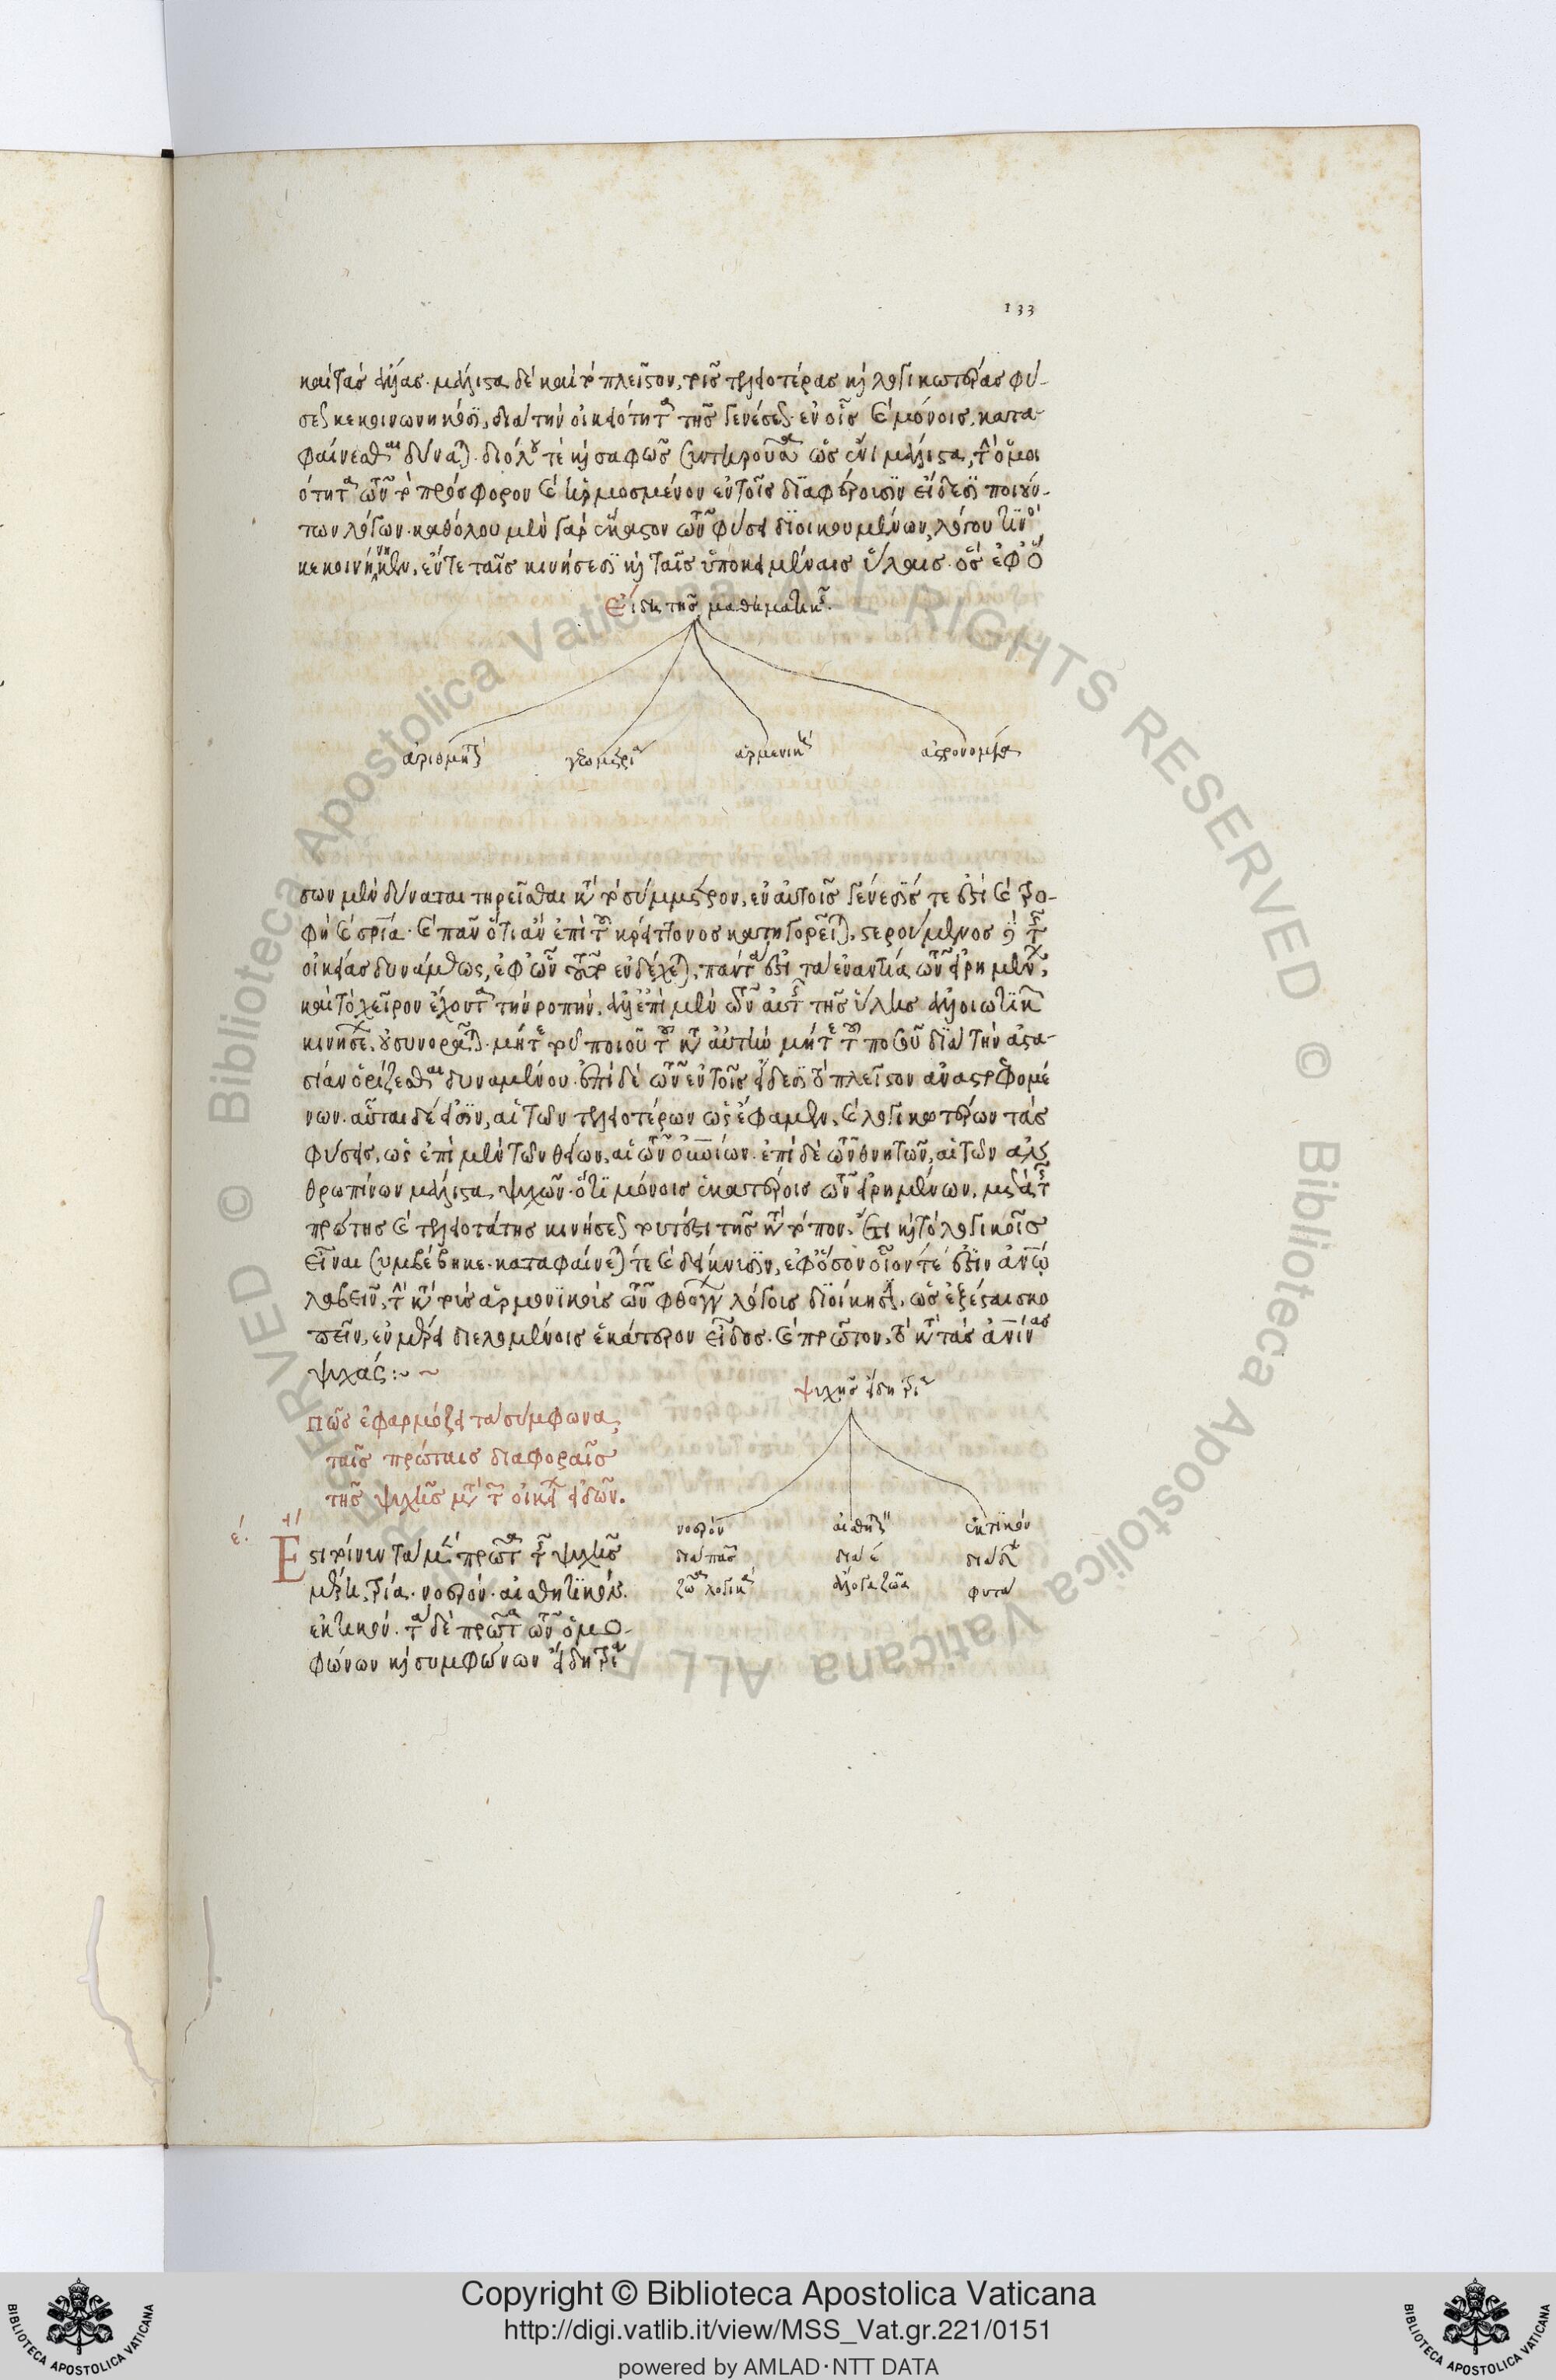 133
καὶ τὰς ἄλλας. μάλιστα δὲ καὶ τὸ πλεῖστον, τοῖς τελειοτέρας καὶ λογικωτέρας φύ-
σεως κεκοινωνηκόσι, διὰ τὴν οἰκειότητα τῆς γενέσεως. ἐν οἷς καὶ μόνοις, κατα-
φαίνεσθαι δύναται. διόλου τὲ καὶ σαφῶς συντηροῦσα ὡς ἔνι μάλιστα, τὴν ὁμοι
ότητα τῶν τὸ πρόσφορον καὶ ἡρμοσμένον ἐν τοῖς διαφόροισιν εἴδεσι ποιούν-
των λόγων. καθόλου μὲν γὰρ ἕκαστον τῶν φύσει διοικουμένων, λόγου τινὸς
κεκοινώνηκεν, ἔν τε ταῖς κινήσεσι καὶ ταῖς ὑποκειμέναις ὕλαις. ὃς ἐφ' ὅ
Εἴδη τῆς μαθηματικῆς.
ἀριθμητική
γεωμετρία
ἁρμονική
ἀστρονομία
σων μὲν δύναται τηρεῖσθαι κατὰ τὸ σύμμετρον, ἐν αὐτοῖς γένεσίς τε ἐστὶ καὶ τρο-
φὴ καὶ σωτηρία. καὶ πᾶν ὅτι ἂν ἐπὶ τοῦ κρείττονος κατηγορεῖται, στερούμενος δὲ τῆς
οἰκείας δυνάμεως, ἐφ' ὧν τοῦτο ἐνδέχεται, πάντα ἐστὶ τὰ ἐναντία τῶν εἰρημένων,
καὶ τὸ χεῖρον ἔχοντα τὴν ροπήν. ἀλλ' ἐπὶ μὲν τῶν αὐτῆς τῆς ὕλης ἀλλοιωτικῶν
κινήσεων, οὐ συνορᾶται. μήτε τοῦ ποιοῦ τοῦ κατ' αὐτὴν μήτε τοῦ ποσοῦ διὰ τὴν ἀστα-
σίαν ὁρίζεσθαι δυναμένου. ἐπὶ δὲ τῶν ἐν τοῖς εἴδεσι τὸ πλεῖστον ἀναστρεφομέ
νων. αὗται δέ εἰσιν, αἱ τῶν τελειοτέρων ὡς ἔφαμεν, καὶ λογικωτέρων τὰς
φύσεις, ὡς ἐπὶ μὲν τῶν θείων, αἱ τῶν οὐνίων. ἐπὶ δὲ τῶν θνητῶν, αἱ τῶν ἀν
θρωπίνων μάλιστα ψυχῶν. ὅτι μόνοις ἑκατέροις τῶν εἰρημένων, μετὰ τῆς
πρώτης καὶ τελειοτάτης κινήσεως τουτέστι τῆς κατὰ τόπον, ἔτι καὶ τὸ λογικοῖς
εἶναι συμβέβηκε. καταφαίνεται τὲ καὶ δείκνυσιν, ἐφ' ὅσον οἷόν τέ ἐστιν ἀνῳ
λαβεῖν, τὴν κατὰ τοὺς ἁρμονικοὺς τῶν φθόγγων λόγοις διοίκησιν, ὡς ἐξέσται σκο
πεῖν, ἐν μέρει διελομένοις ἑκάτερον εἶδος. καὶ πρῶτον, τὸ κατὰ τὰς ἀνίνας
ψυχάς:~ ~
Πῶς ἐφαρμόζει τὰ σύμφωνα,
ταῖς πρώταις διαφοραῖς
τῆς ψυχῆς μετὰ τῶν οἰκείων εἰδῶν.
ψυχῆς εἴδη τρία
νοερὸν
διαπασῶν
ζῶα λογικά
αἰσθητικὸν
διὰ ε
ἄλογα ζῶα
ἑκτικὸν
διὰ δ
φυτὰ
ε.
Ἔστι τοίνυν τὰ μὲν πρῶτα τῆς ψυχῆς
μέρη, τρία. νοερόν. αἰσθητικόν.
ἑκτικόν. τὰ δὲ πρῶτα τῶν ὁμο-
φώνων καὶ συμφώνων εἴδη τρία
Copyright © Biblioteca Apostolica Vaticana
http://digi.vatlib.it/view/MSS_Vat.gr.221/0151
powered by AMLAD·NTT DATA